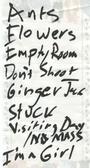 Ants
Flowers
Empty Room
Don't Shoot
Ginger Jar
Stuck
Visiting Day
/NO MASS
I'm a Girl